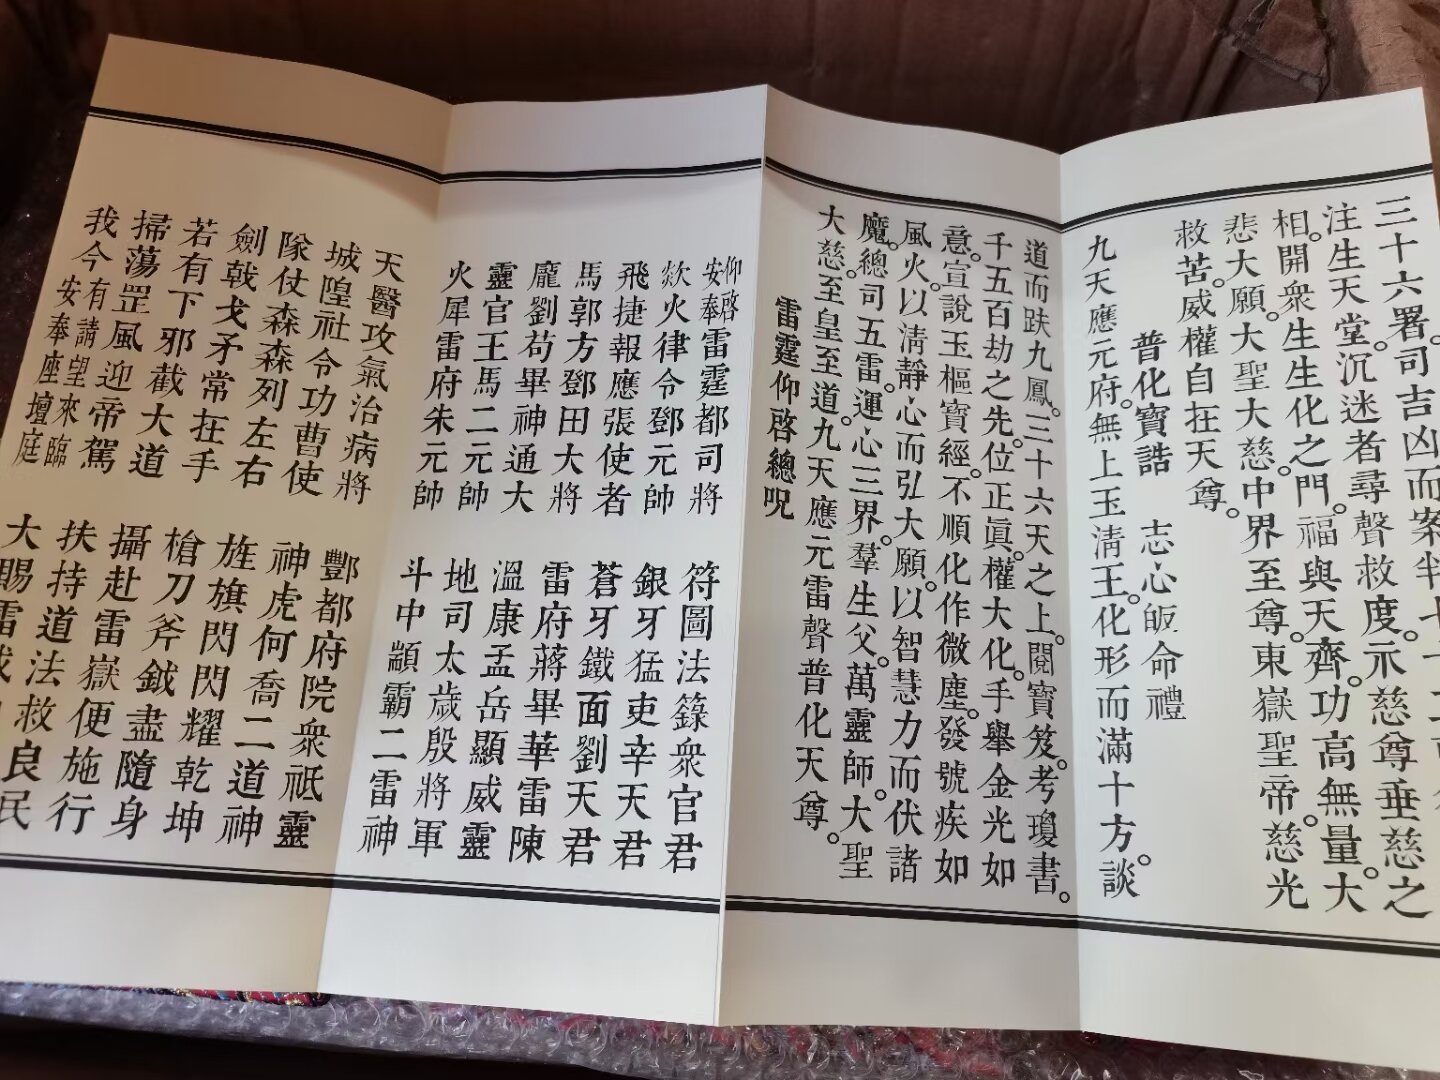 三十六署。司吉凶而案判七十二司。
注生天堂。沉迷者尋聲救度。示慈尊垂慈之
相。開衆生生化之門。福與天齊。功高無量。大
悲大願。大聖大慈。中界至尊。東嶽聖帝。慈光
救苦。威權自在天尊。
普化寶誥 志心皈命禮
九天應元府。無上玉清王。化形而滿十方。談
道而趺九鳳。三十六天之上。閱寶笈。考瓊書。
千五百劫之先。位正眞。權大化。手舉金光如
意。宣說玉樞寶經。不順化作微塵。發號疾如
風火。以淸靜心而弘大願。以智慧力而伏諸
魔。總司五雷。運心三界。羣生父。萬靈師。大聖
大慈。至皇至道。九天應元雷聲普化天尊。
雷霆仰啓總呪
仰啓安奉雷霆都司將 符圖法籙衆官君
欻火律令鄧元帥 銀牙猛吏辛天君
飛捷報應張使者 蒼牙鐵面劉天君
馬郭方鄧田大將 雷府蔣畢華雷陳
龐劉苟畢神通大 溫康孟岳顯威靈
靈官王馬二元帥 地司太歲殷將軍
火犀雷府朱元帥 斗中顓霸二雷神
天醫攻氣治病將 酆都府院衆祇靈
城隍社令功曹使 神虎何喬二道神
隊仗森森列左右 旌旗閃閃耀乾坤
劍戟戈矛常在手 槍刀斧鉞盡隨身
若有下邪截大道 攝赴雷嶽便施行
掃蕩罡風迎帝駕 扶持道法救良民
我今有請望來臨安奉座壇庭 大賜雷威